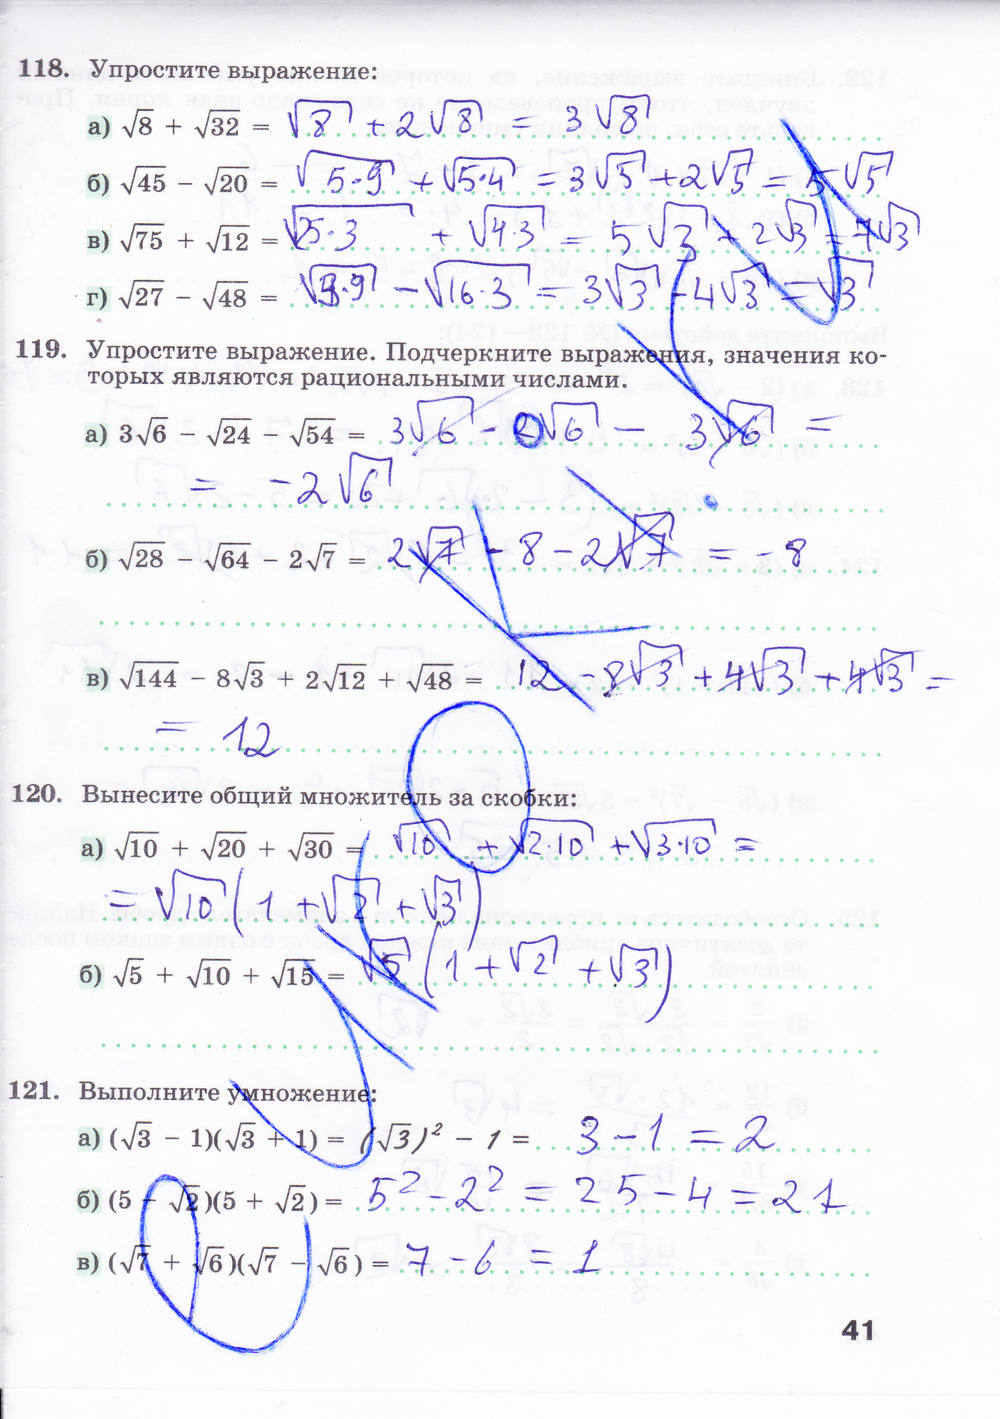 118. Упростите выражение:
а) √8 + √32 = √8 + 2√8 = 3√8
б) √45 − √20 = √5·9 + √5·4 = 3√5 + 2√5 = 5√5
в) √75 + √12 = √25·3 + √4·3 = 5√3 + 2√3 = 7√3
г) √27 − √48 = √3·9 − √16·3 = 3√3 − 4√3 = −√3
119. Упростите выражение. Подчеркните выражения, значения ко-
торых являются рациональными числами.
а) 3√6 − √24 − √54 = 3√6 − 2√6 − 3√6 =
= −2√6
б) √28 − √64 − 2√7 = 2√7 − 8 − 2√7 = −8
в) √144 − 8√3 + 2√12 + √48 = 12 − 8√3 + 4√3 + 4√3 =
= 12
120. Вынесите общий множитель за скобки:
а) √10 + √20 + √30 = √10 + √2·10 + √3·10 =
= √10 (1 + √2 + √3)
б) √5 + √10 + √15 = √5 (1 + √2 + √3)
121. Выполните умножение:
а) (√3 − 1)(√3 + 1) = (√3)² − 1 = 3 − 1 = 2
б) (5 − √2)(5 + √2) = 5² − 2² = 25 − 4 = 21
в) (√7 + √6)(√7 − √6) = 7 − 6 = 1
41